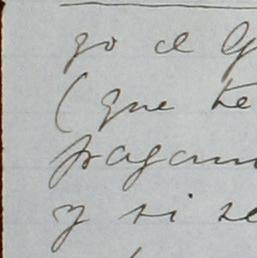 go el G
(que te
pagamo
y si se